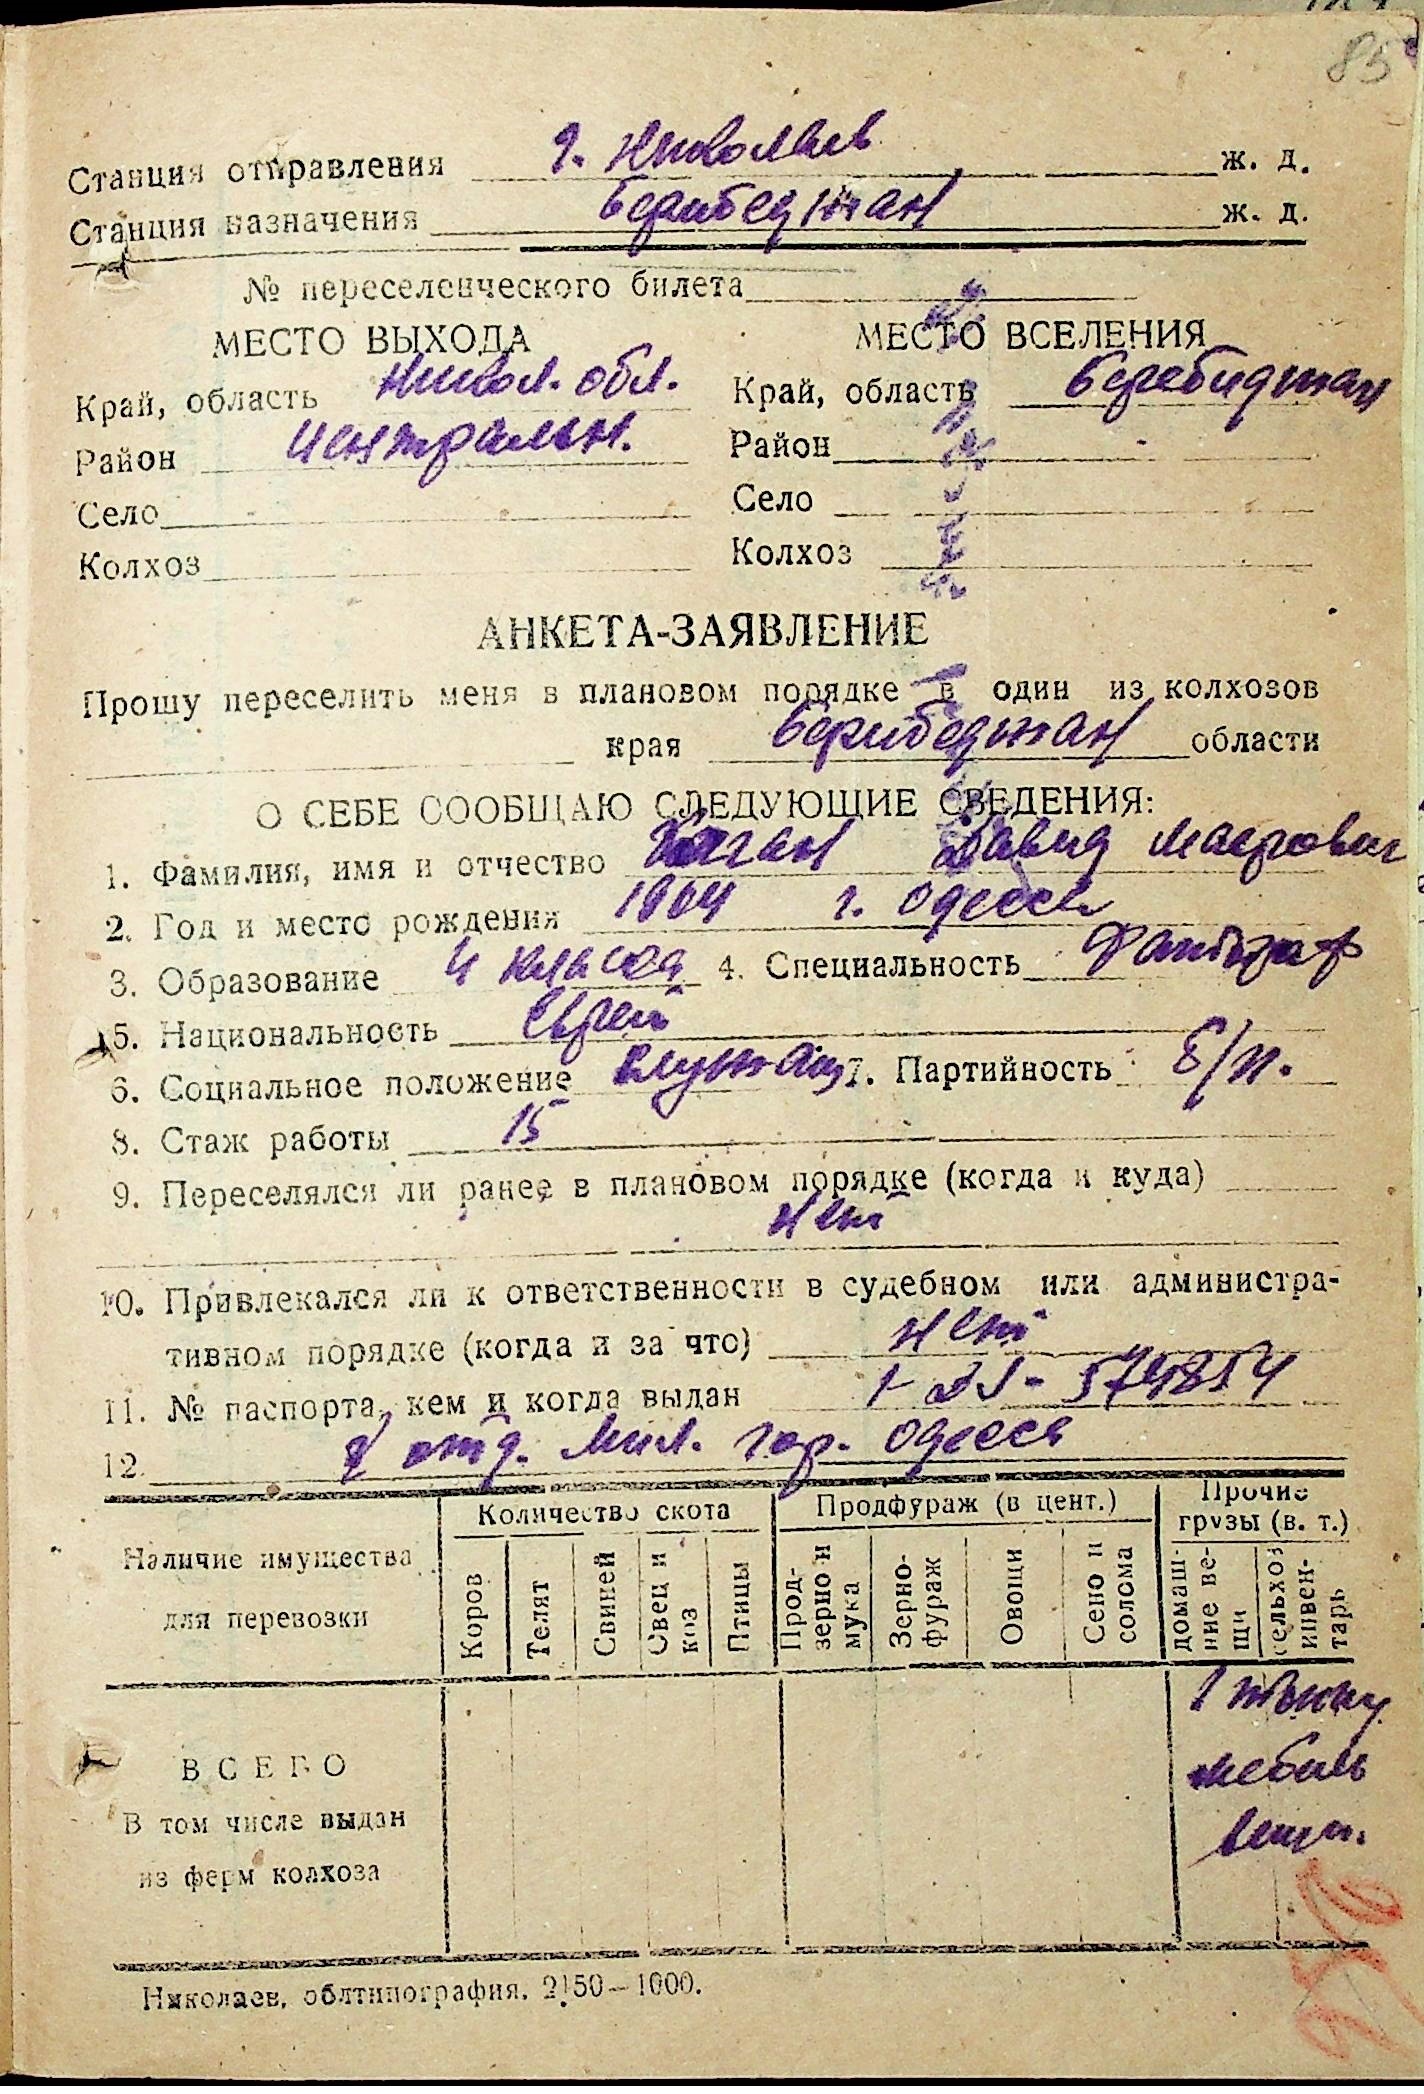 85
Станция отправления г. Николаев ж. д.
Станция назначения Берибеджан ж. д.
№ переселенческого билета
МЕСТО ВЫХОДА
Край, область Никол. обл.
Район Централн.
Село
Колхоз
МЕСТО ВСЕЛЕНИЯ
Край, область Беребиджан
Район
Село
Колхоз
АНКЕТА-ЗАЯВЛЕНИЕ
Прошу переселить меня в плановом порядке в один из колхозов
края Берибеджан области
О СЕБЕ СООБЩАЮ СЛЕДУЮЩИЕ СВЕДЕНИЯ:
1. Фамилия, имя и отчество Каган Давид Маерович
2. Год и место рождения 1904 г. Одесса
3. Образование 4 класса 4. Специальность
5. Национальность Еврей
6. Социальное положение Служащ 7. Партийность Б/п.
8. Стаж работы 15
9. Переселялся ли ранее в плановом порядке (когда и куда)
нет
10. Привлекался ли к ответственности в судебном или администра-
тивном порядке (когда и за что) нет
11. № паспорта, кем и когда выдан 574854
12. отд. Мил. гор. Одесса
Наличие имущества для перевозки
Количество скота
Продфураж (в цент.)
Прочие грузы (в. т.)
Коров
Телят
Свиней
Овец и коз
Птицы
Прод-зерно и мука
Зерно-фураж
Овощи
Сено и солома
домаш-ние ве-щи
сельхоз инвен-тарь
1 тонну
мебель
вещи.
ВСЕГО
В том числе выдан
из ферм колхоза
Николаев, облтипография. 2150—1000.